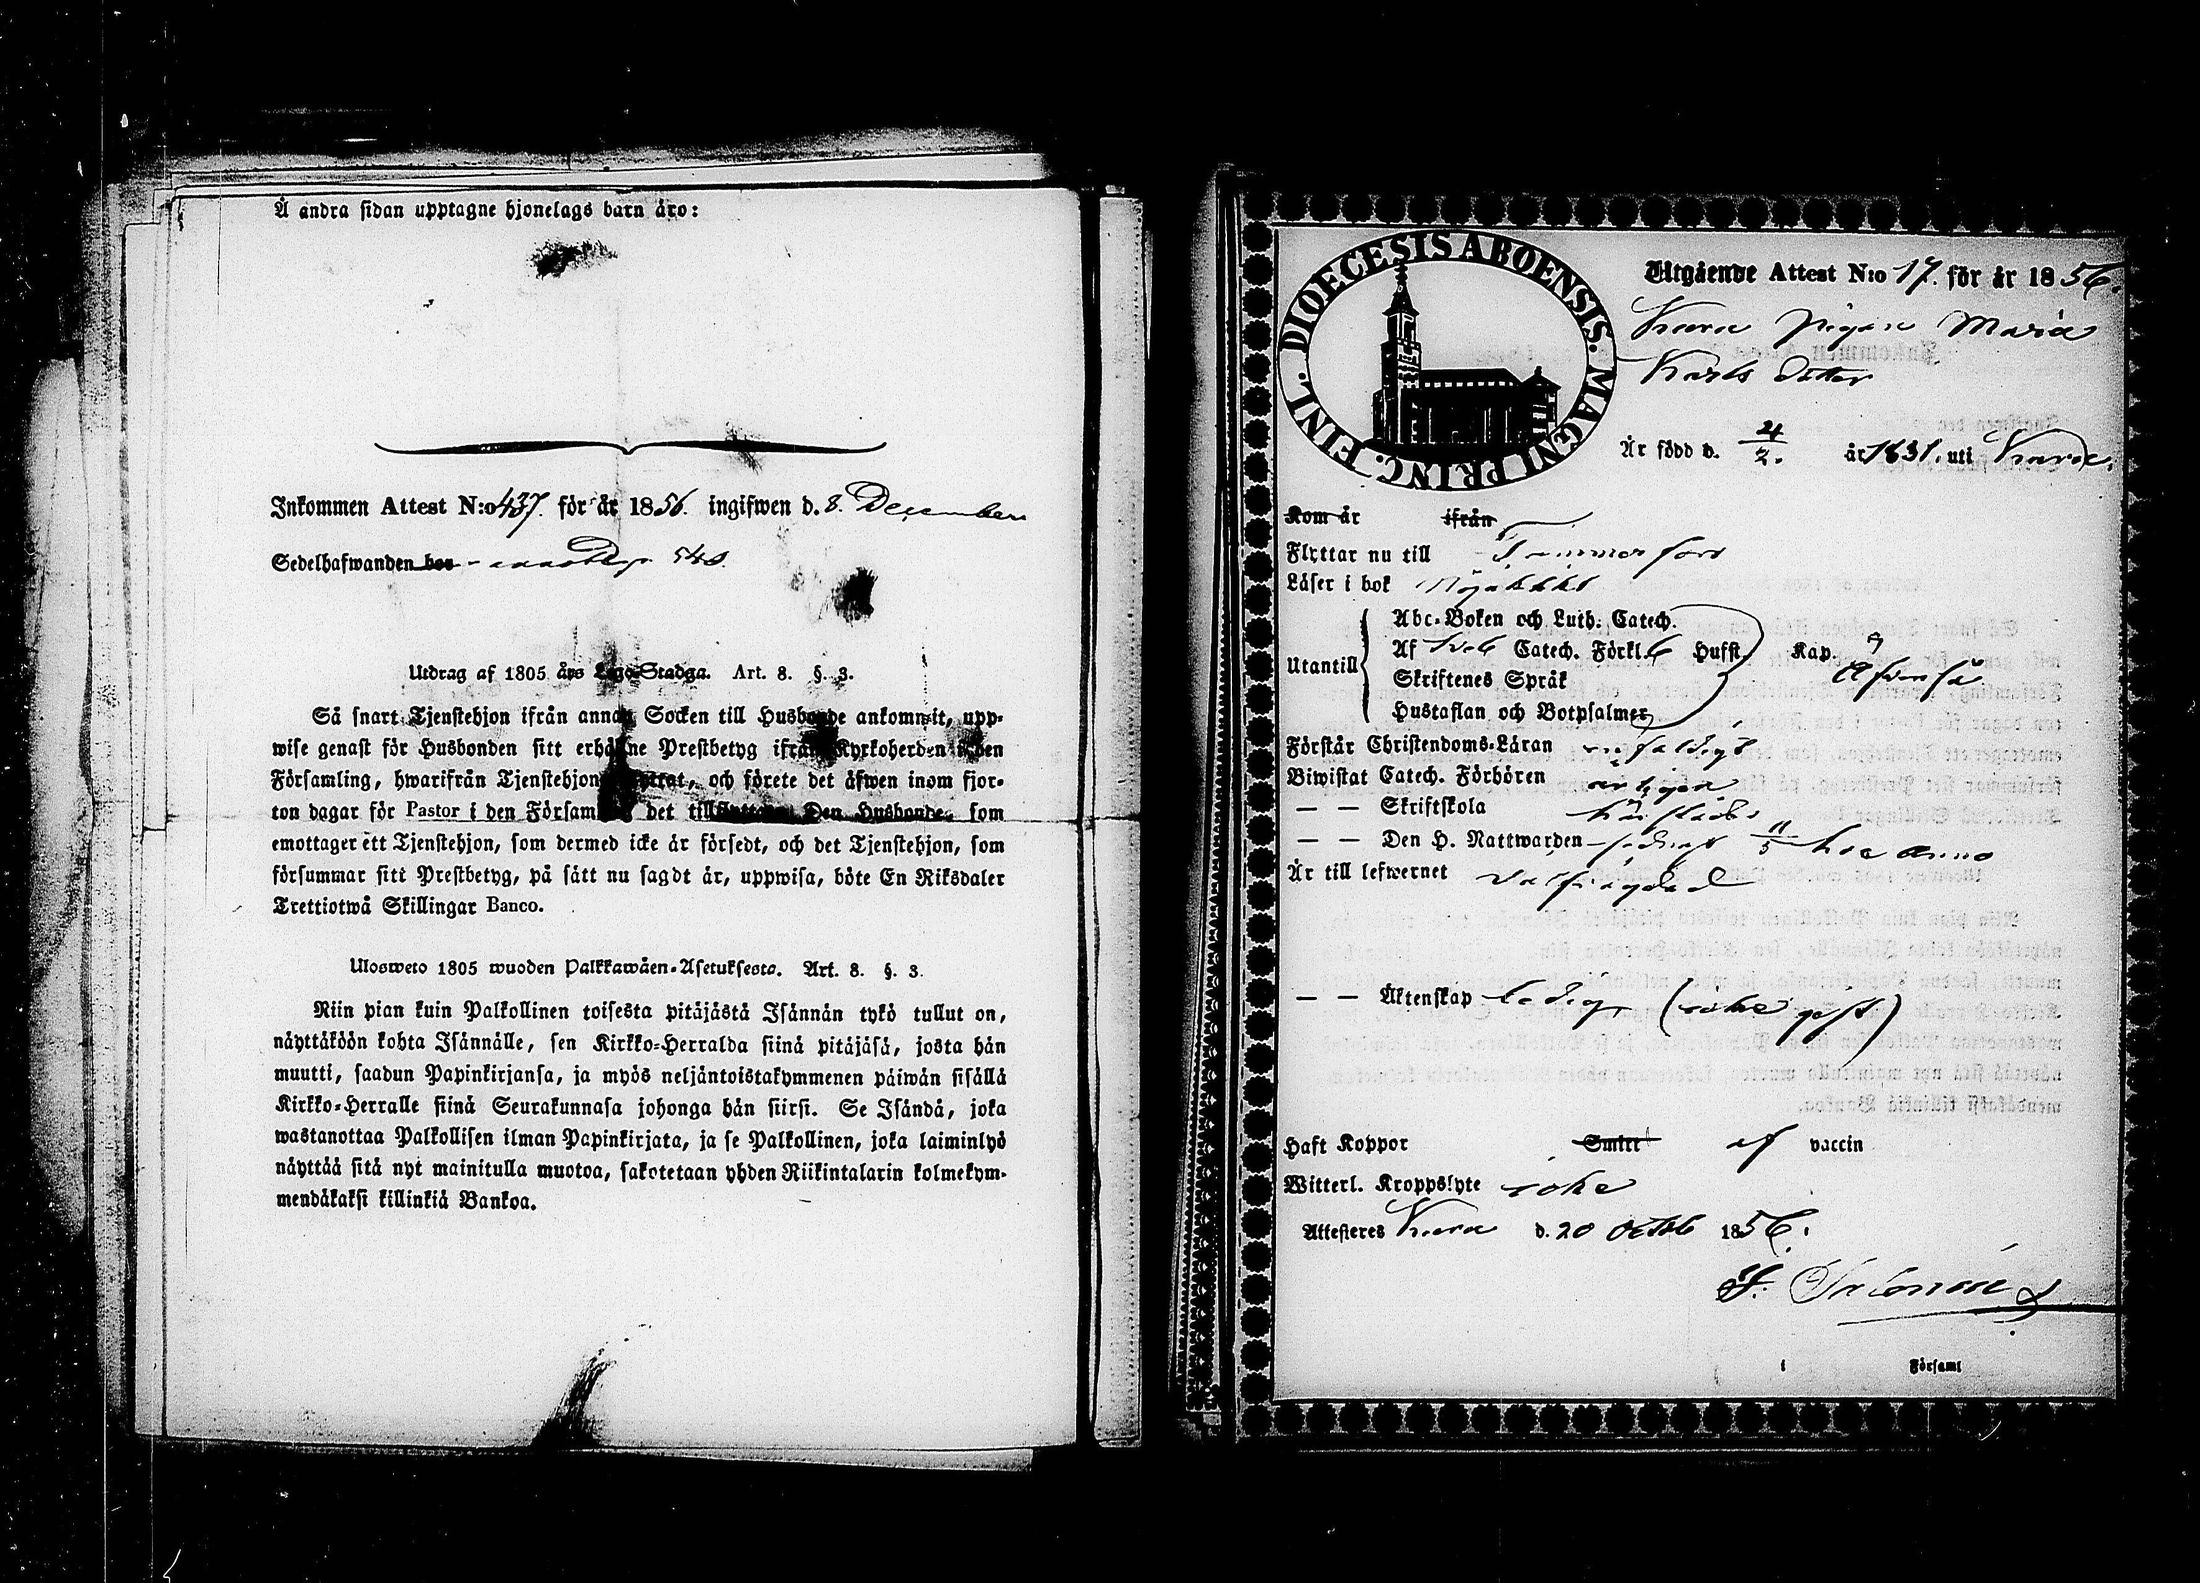 Å andra sidan upptagne hjonelags barn äro:
Inkommen Attest N:o 437. för år 1856. ingifwen d. 8. December
Sedelhafwanden hos 540.
Utdrag af 1805 års Lego-Stadga. Art. 8. §. 3.
Så snart Tjenstehjon ifrån annan Socken till Husbonde ankommit, upp-
wise genast för Husbonden sitt erhållne Prestbetyg ifrån Kyrkoherden i den
Församling, hwarifrån Tjenstehjon flyttat, och förete det äfwen inom fjor-
ton dagar för Pastor i den Församling det tillflyttat. Den Husbonde, som
emottager ett Tjenstehjon, som dermed icke är försedt, och det Tjenstehjon, som
försummar sitt Prestbetyg, på sätt nu sagdt är, uppwisa, böte En Riksdaler
Trettiotwå Skillingar Banco.
Ulosweto 1805 wuoden Palkkawäen-Asetuksesta. Art. 8. §. 3.
Niin pian kuin Palkollinen toisesta pitäjästä Isännän tykö tullut on,
näyttäköön kohta Isännälle, sen Kirkko-Herralda siinä pitäjäsä, josta hän
muutti, saadun Papinkirjansa, ja myös neljäntoistakymmenen päiwän sisällä
Kirkko-Herralle siinä Seurakunnasa johonga hän siirsi. Se Isändä, joka
wastanottaa Palkollisen ilman Papinkirjata, ja se Palkollinen, joka laiminlyö
näyttää sitä nyt mainitulla muotoa, sakotetaan yhden Riikintalarin kolmekym-
mendäkaksi killinkiä Bankoa.
DIOECESIS ABOENSIS. MAGNI PRINC. FINL.
Utgående Attest N:o 17. för år 1856.
Pigan Maria
Karls dotter
Är född d. 4/2. år 1831. uti
Kom år ifrån
Flyttar nu till Tammerfors
Läser i bok Nöjaktigt
Utantill
Abc-Boken och Luth. Catech.
Af Sveb Catech. Förkl. 6 Hufst. Kap.
Skriftenes Språk
Hustaflan och Botpsalmer
Äfvenså
Förstår Christendoms-Läran enfaldigt
Biwistat Catech. Förhören årligen
— — Skriftskola
— — Den H. Nattwarden sednast 11/5 hoc anno
Är till lefwernet välfrägdad
— — Äktenskap ledig (icke gift)
Haft Koppor Smitt af vaccin
Witterl. Kroppslyte icke
Attesteres d. 20 Octob 1856.
i Församl